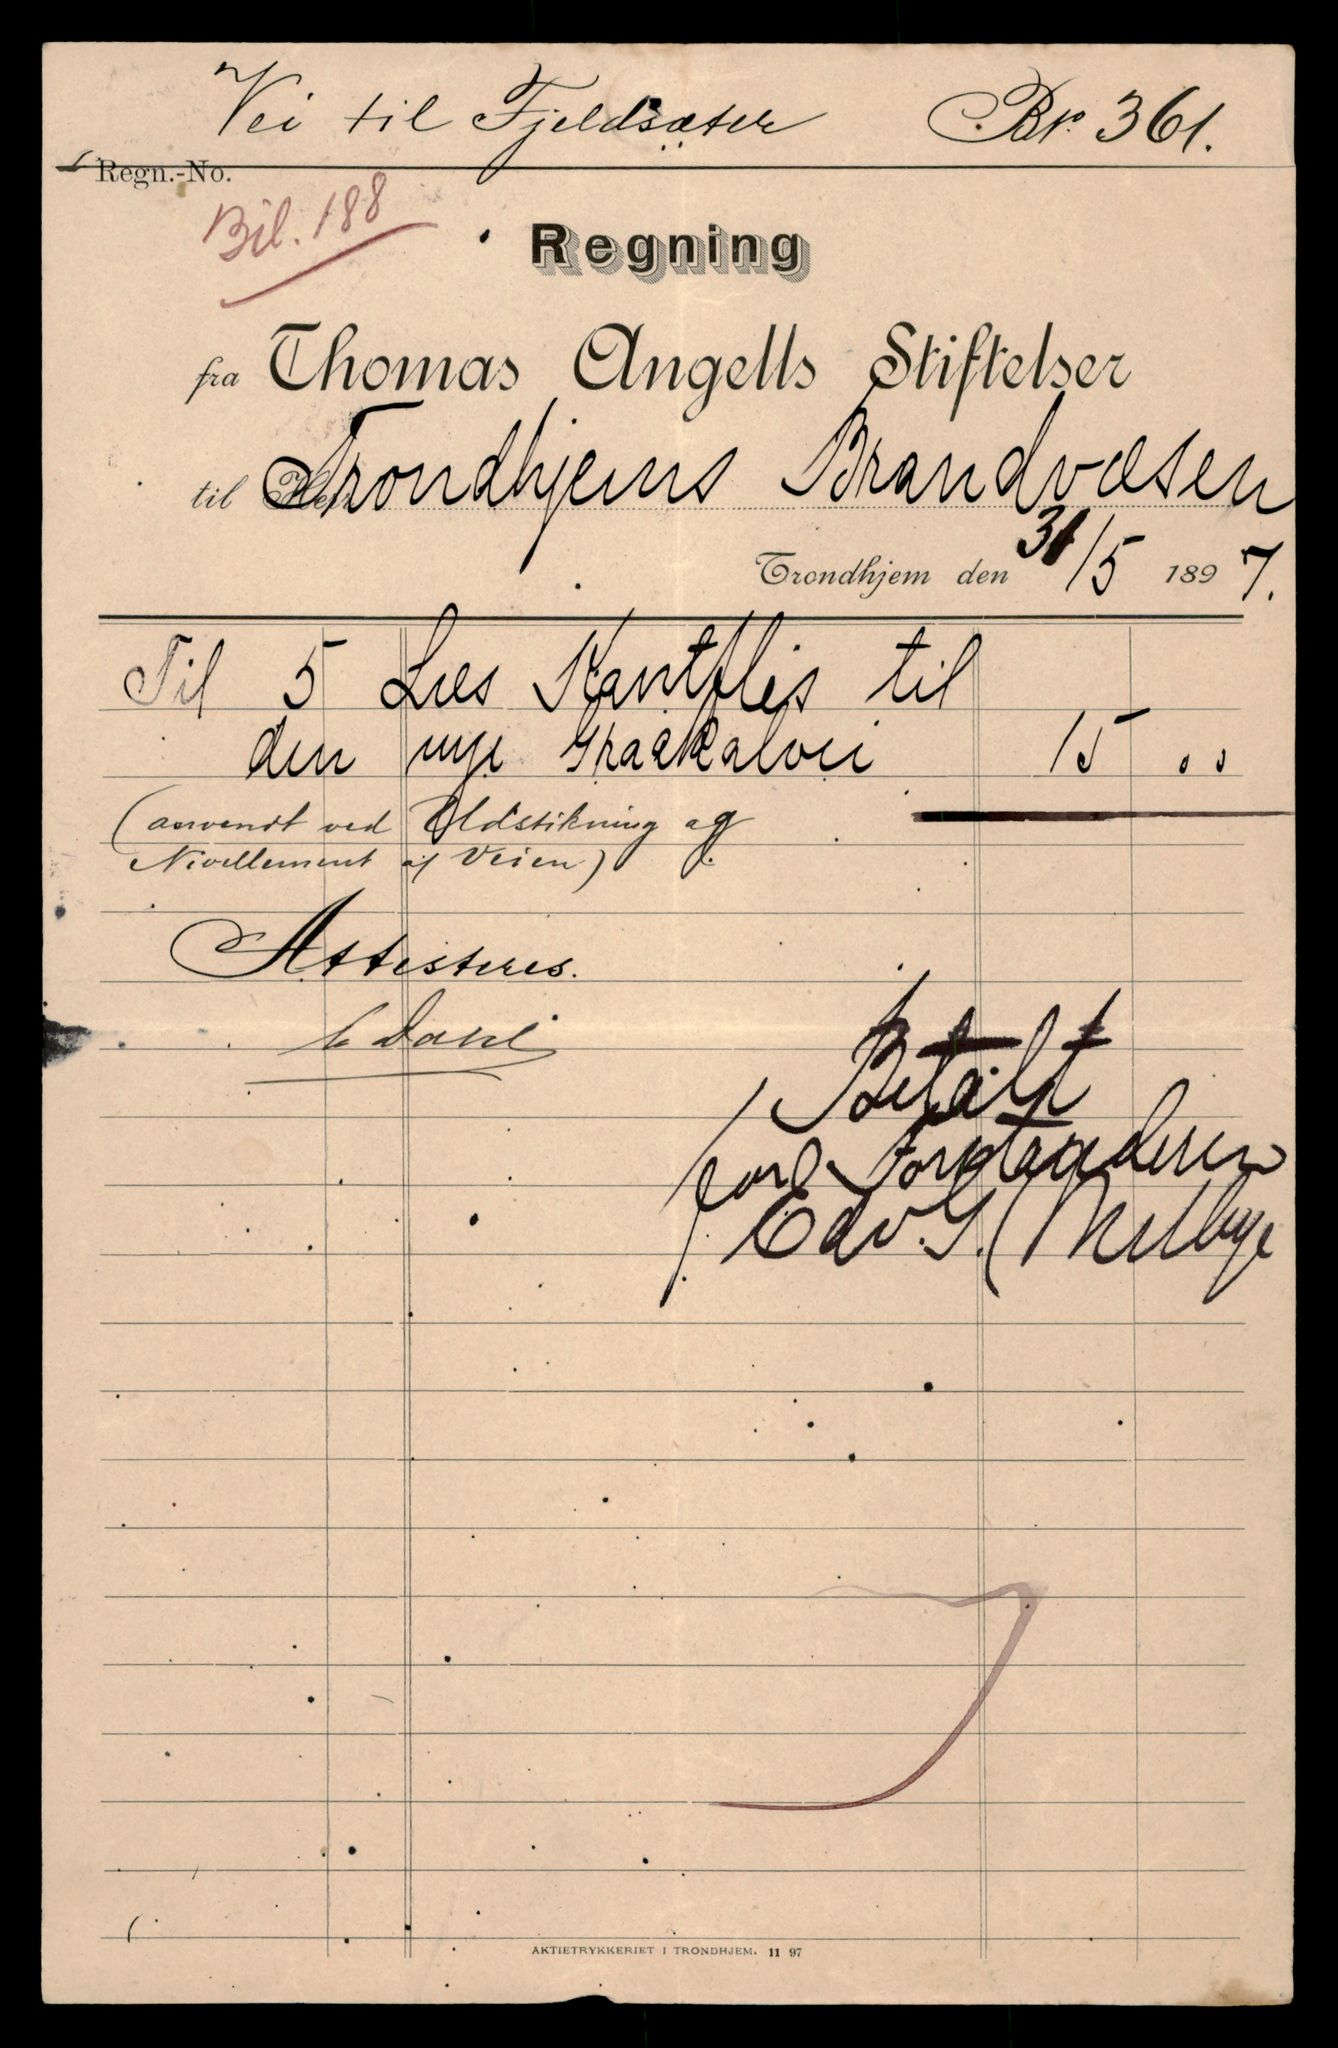 Vei til Fjeldsæter Br. 361.
Regn.-No.
Bil. 188
Regning
fra Thomas Angells Stiftelser
til Trondhjems Brandvæsen
Trondhjem den 31/5 1897.
Til 5 Læs Kantflis til
den nye Graakalvei 15 "
(anvendt ved Udstikning og
Nivellement af Veien)
Attesteres.
Dahl
Betalt
for Forstanderen
Edv. G. Melbye
AKTIETRYKKERIET I TRONDHJEM. 11 97